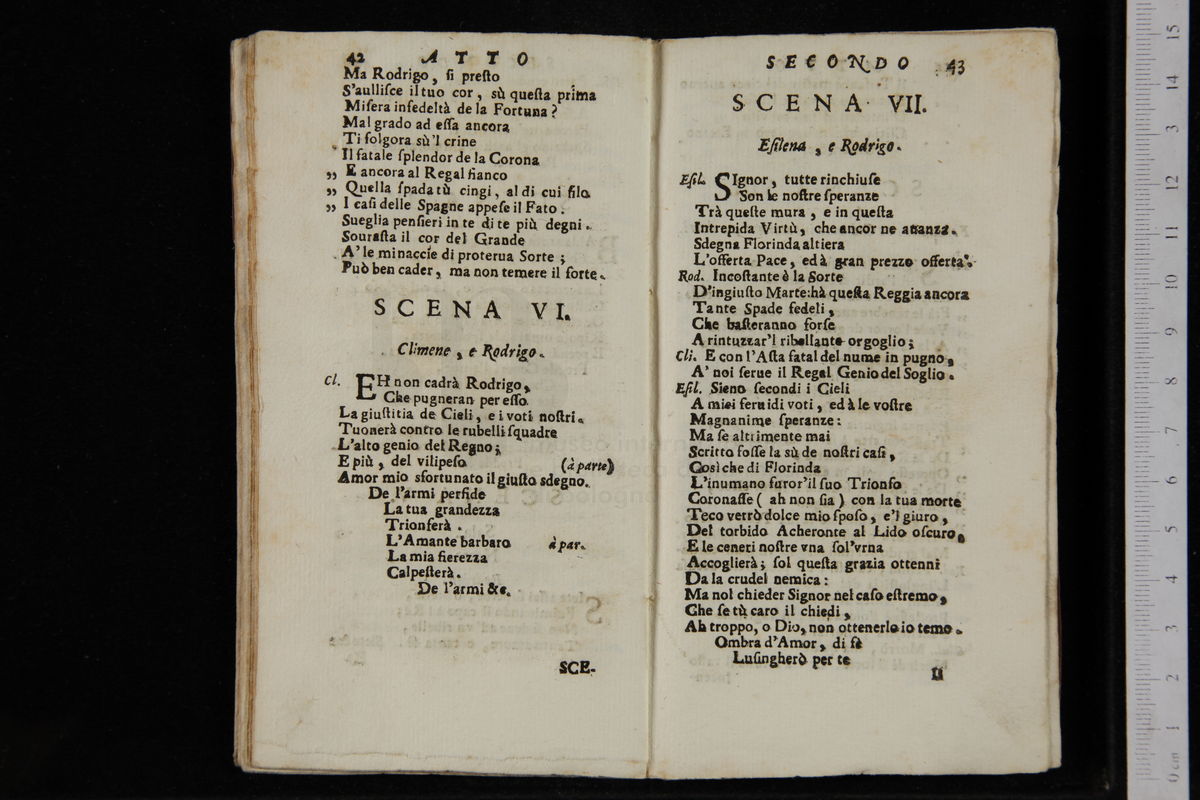 42 ATTO
Ma Rodrigo, ſi preſto
S'auliſce il tuo cor, sù queſta prima
Miſera infedeltà de la Fortuna?
Mal grado ad eſſa ancora
Ti folgora sù'l crine
Il fatale ſplendor de la Corona
„ E ancora al Regal fianco
„ Quella ſpada tù cingi, al di cui filo
„ I caſi delle Spagne appeſe il Fato.
Sueglia penſieri in te di te più degni.
Souraſta il cor del Grande
A' le minaccie di proterua Sorte;
Può ben cader, ma non temere il forte.
SCENA VI.
Climene, e Rodrigo.
Cl. EH non cadrà Rodrigo,
Che pugneran per eſſo
La giuſtitia de Cieli, e i voti noſtri.
Tuonerà contro le rubelli ſquadre
L'alto genio del Regno;
E più, del vilipeſo (à parte)
Amor mio sfortunato il giuſto sdegno.
De l'armi perfide
La tua grandezza
Trionferà.
L'Amante barbaro à par.
La mia fierezza
Calpeſterà.
De l'armi &c.
SCE-
SECONDO 43
SCENA VII.
Eſilena, e Rodrigo.
Eſil. SIgnor, tutte rinchiuſe
Son le noſtre ſperanze
Trà queſte mura, e in queſta
Intrepida Virtù, che ancor ne auanza.
Sdegna Florinda altiera
L'offerta Pace, ed à gran prezzo offerta.
Rod. Incoſtante è la Sorte
D'ingiuſto Marte: hà queſta Reggia ancora
Tante Spade fedeli,
Che baſteranno forſe
A rintuzzar'l ribellante orgoglio;
Cli. E con l'Aſta fatal del nume in pugno,
A' noi ſerue il Regal Genio del Soglio.
Eſil. Sieno ſecondi i Cieli
A miei feruidi voti, ed à le voſtre
Magnanime ſperanze:
Ma ſe altrimente mai
Scritto foſſe la sù de noſtri caſi,
Così che di Florinda
L'inumano furor'il ſuo Trionfo
Coronaſſe ( ah non ſia ) con la tua morte
Teco verrò dolce mio ſpoſo, e'l giuro,
Del torbido Acheronte al Lido oſcuro,
E le ceneri noſtre vna ſol'vrna
Accoglierà; ſol queſta grazia ottenni
Da la crudel nemica:
Ma nol chieder Signor nel caſo eſtremo,
Che ſe tù caro il chiedi,
Ah troppo, o Dio, non ottenerlo io temo.
Ombra d'Amor, di fè
Luſingherò per te
Il